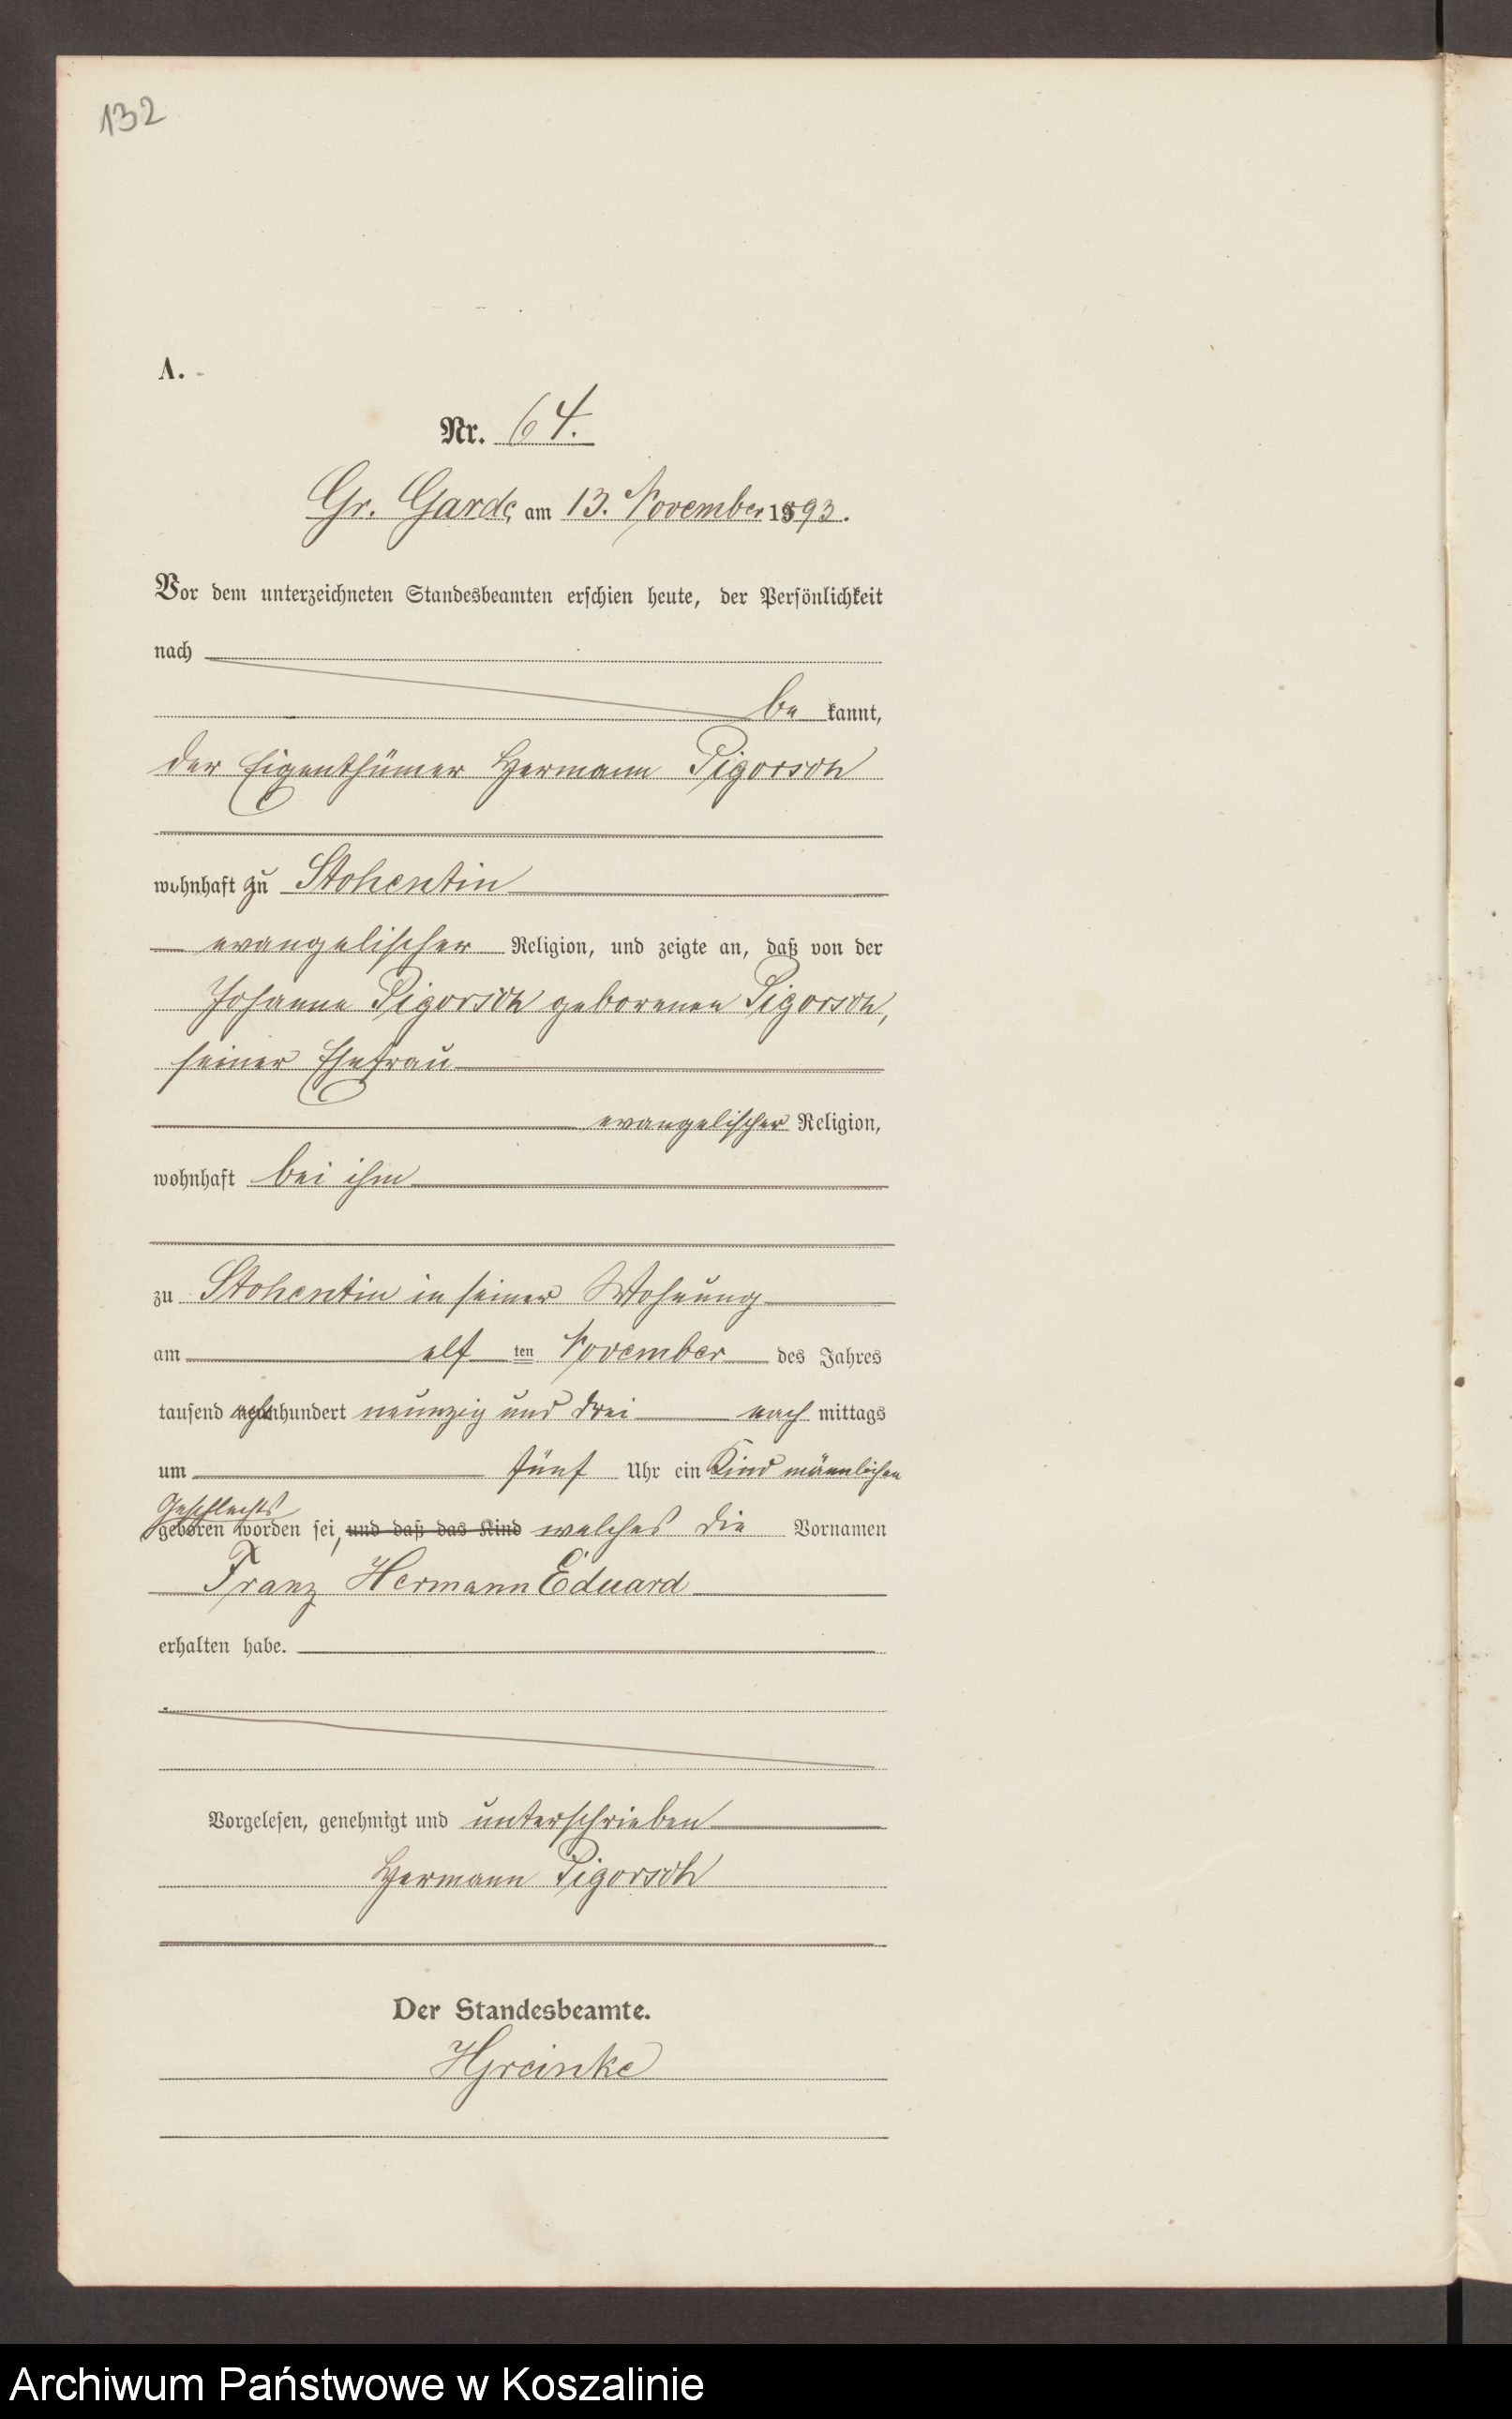 132
A.
Nr. 64.
Gr. Garde, am 13. November 1893.
Vor dem unterzeichneten Standesbeamten erschien heute, der Persönlichkeit
nach
be kannt,
der Eigenthümer Hermann Pigorsch
wohnhaft zu Stohentin
evangelischer Religion, und zeigte an, daß von der
Johanne Pigorsch geborenen Pigorsch,
seiner Ehefrau
evangelischer Religion,
wohnhaft bei ihm
zu Stohentin in seiner Wohnung
am elf ten November des Jahres
tausend achthundert neunzig und drei nach mittags
um fünf Uhr ein Kind männlichen
Geschlechts
geboren worden sei, und daß das Kind welches die Vornamen
Franz Hermann Eduard
erhalten habe.
Vorgelesen, genehmigt und unterschrieben
Hermann Pigorsch
Der Standesbeamte.
Archiwum Państwowe w Koszalinie